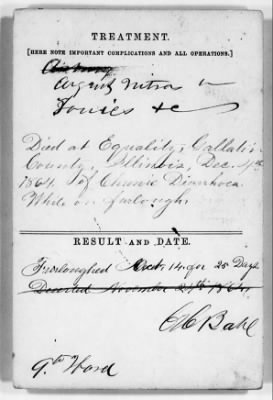 TREATMENT.
[HERE NOTE IMPORTANT COMPLICATIONS AND ALL OPERATIONS.]
Argent Nitras
Tonics &c
Died at Equality, Gallatin
County, Illinois, Dec. 4th
1864. of Chronic Diarrhoea
While on furlough.
RESULT AND DATE.
Furloughed Oct. 14 for 25 Days
Deserted November 24th 1864.
Bahl
9th Ward